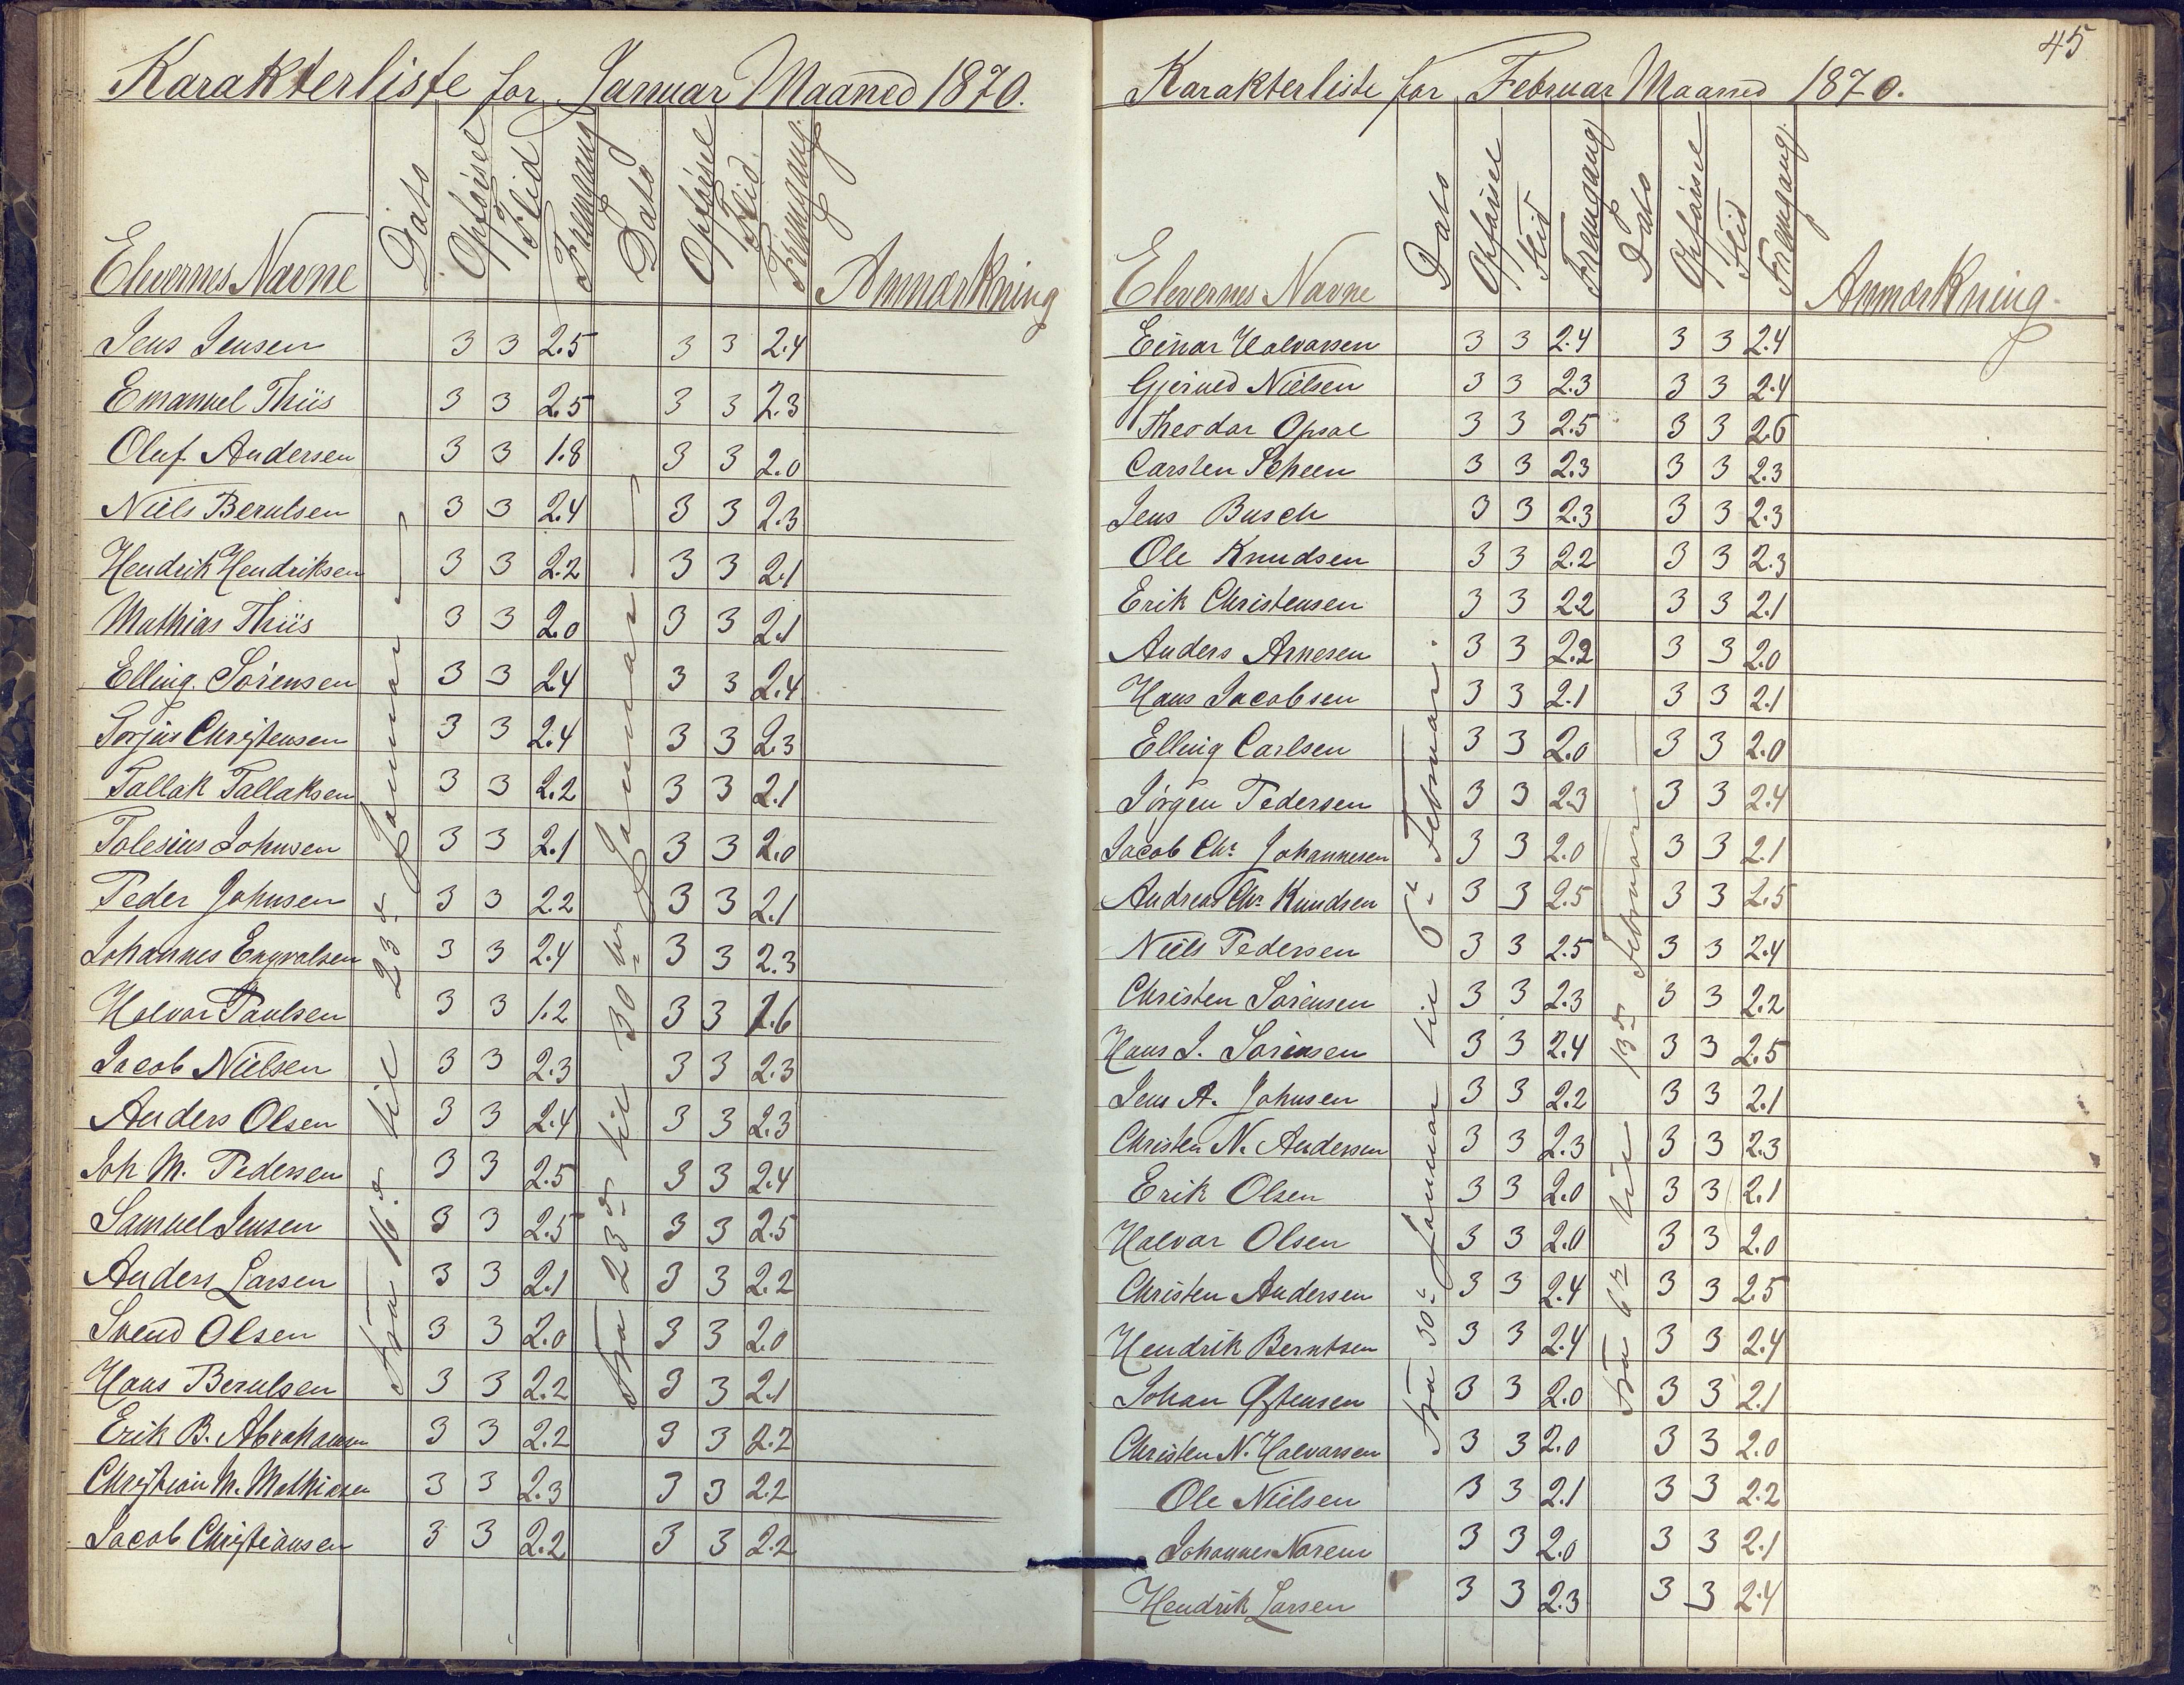 Karakterliste for Januar Maaned 1870.
Elevernes Navne Dato Opförsel Flid Fremgang Dato Opförsel Flid Fremgang Anmærkning
fra 16.de til 23.de Januar
fra 23.de til 30.te Januar
Jens Jensen 3 3 2.5 3 3 2.4
Emanuel Thiis 3 3 2.5 3 3 2.3
Oluf Andersen 3 3 1.8 3 3 2.0
Niels Berulsen 3 3 2.4 3 3 2.3
Hendrik Hendriksen 3 3 2.2 3 3 2.1
Mathias Thiis 3 3 2.0 3 3 2.1
Elling Sörensen 3 3 2.4 3 3 2.4
Torjus Christensen 3 3 2.4 3 3 2.3
Tallak Tallaksen 3 3 2.2 3 3 2.1
Tolesius Johnsen 3 3 2.1 3 3 2.0
Peder Johnsen 3 3 2.2 3 3 2.1
Johannes Engvalsen 3 3 2.4 3 3 2.3
Halvor Paulsen 3 3 1.2 3 3 1.6
Jacob Nielsen 3 3 2.3 3 3 2.3
Anders Olsen 3 3 2.4 3 3 2.3
Joh M. Pedersen 3 3 2.5 3 3 2.4
Samuel Jensen 3 3 2.5 3 3 2.5
Anders Larsen 3 3 2.1 3 3 2.2
Svend Olsen 3 3 2.0 3 3 2.0
Hans Berulsen 3 3 2.2 3 3 2.1
Erik B. Abrahamsen 3 3 2.2 3 3 2.2
Christian M. Mathiasen 3 3 2.3 3 3 2.2
Jacob Christiansen 3 3 2.2 3 3 2.2
45
Karakterliste for Februar Maaned 1870.
Elevernes Navne Dato Opförsel Flid Fremgang Dato Opförsel Flid Fremgang Anmærkning
fra 30.te Januar til 6.te Februar.
fra 6.te til 13.de Februar
Einar Halvorsen 3 3 2.4 3 3 2.4
Gjerued Nielsen 3 3 2.3 3 3 2.4
Theodor Opsal 3 3 2.5 3 3 2.6
Carsten Scheen 3 3 2.3 3 3 2.3
Jens Busch 3 3 2.3 3 3 2.3
Ole Knudsen 3 3 2.2 3 3 2.3
Erik Christensen 3 3 2.2 3 3 2.1
Anders Arnesen 3 3 2.2 3 3 2.0
Hans Jacobsen 3 3 2.1 3 3 2.1
Elling Carlsen 3 3 2.0 3 3 2.0
Jörgen Pedersen 3 3 2.3 3 3 2.4
Jacob Chr. Johannesen 3 3 2.0 3 3 2.1
Andreas Chr. Knudsen 3 3 2.5 3 3 2.5
Niels Pedersen 3 3 2.5 3 3 2.4
Christen Sörensen 3 3 2.3 3 3 2.2
Hans J. Sörensen 3 3 2.4 3 3 2.5
Jens A. Johnsen 3 3 2.2 3 3 2.1
Christen N. Andersen 3 3 2.3 3 3 2.3
Erik Olsen 3 3 2.0 3 3 2.1
Halvor Olsen 3 3 2.0 3 3 2.0
Christen Andersen 3 3 2.4 3 3 2.5
Hendrik Berntsen 3 3 2.4 3 3 2.4
Johan Østensen 3 3 2.0 3 3 2.1
Christen N. Halvorsen 3 3 2.0 3 3 2.0
Ole Nielsen 3 3 2.1 3 3 2.2
Johannes Norem 3 3 2.0 3 3 2.1
Hendrik Larsen 3 3 2.3 3 3 2.4